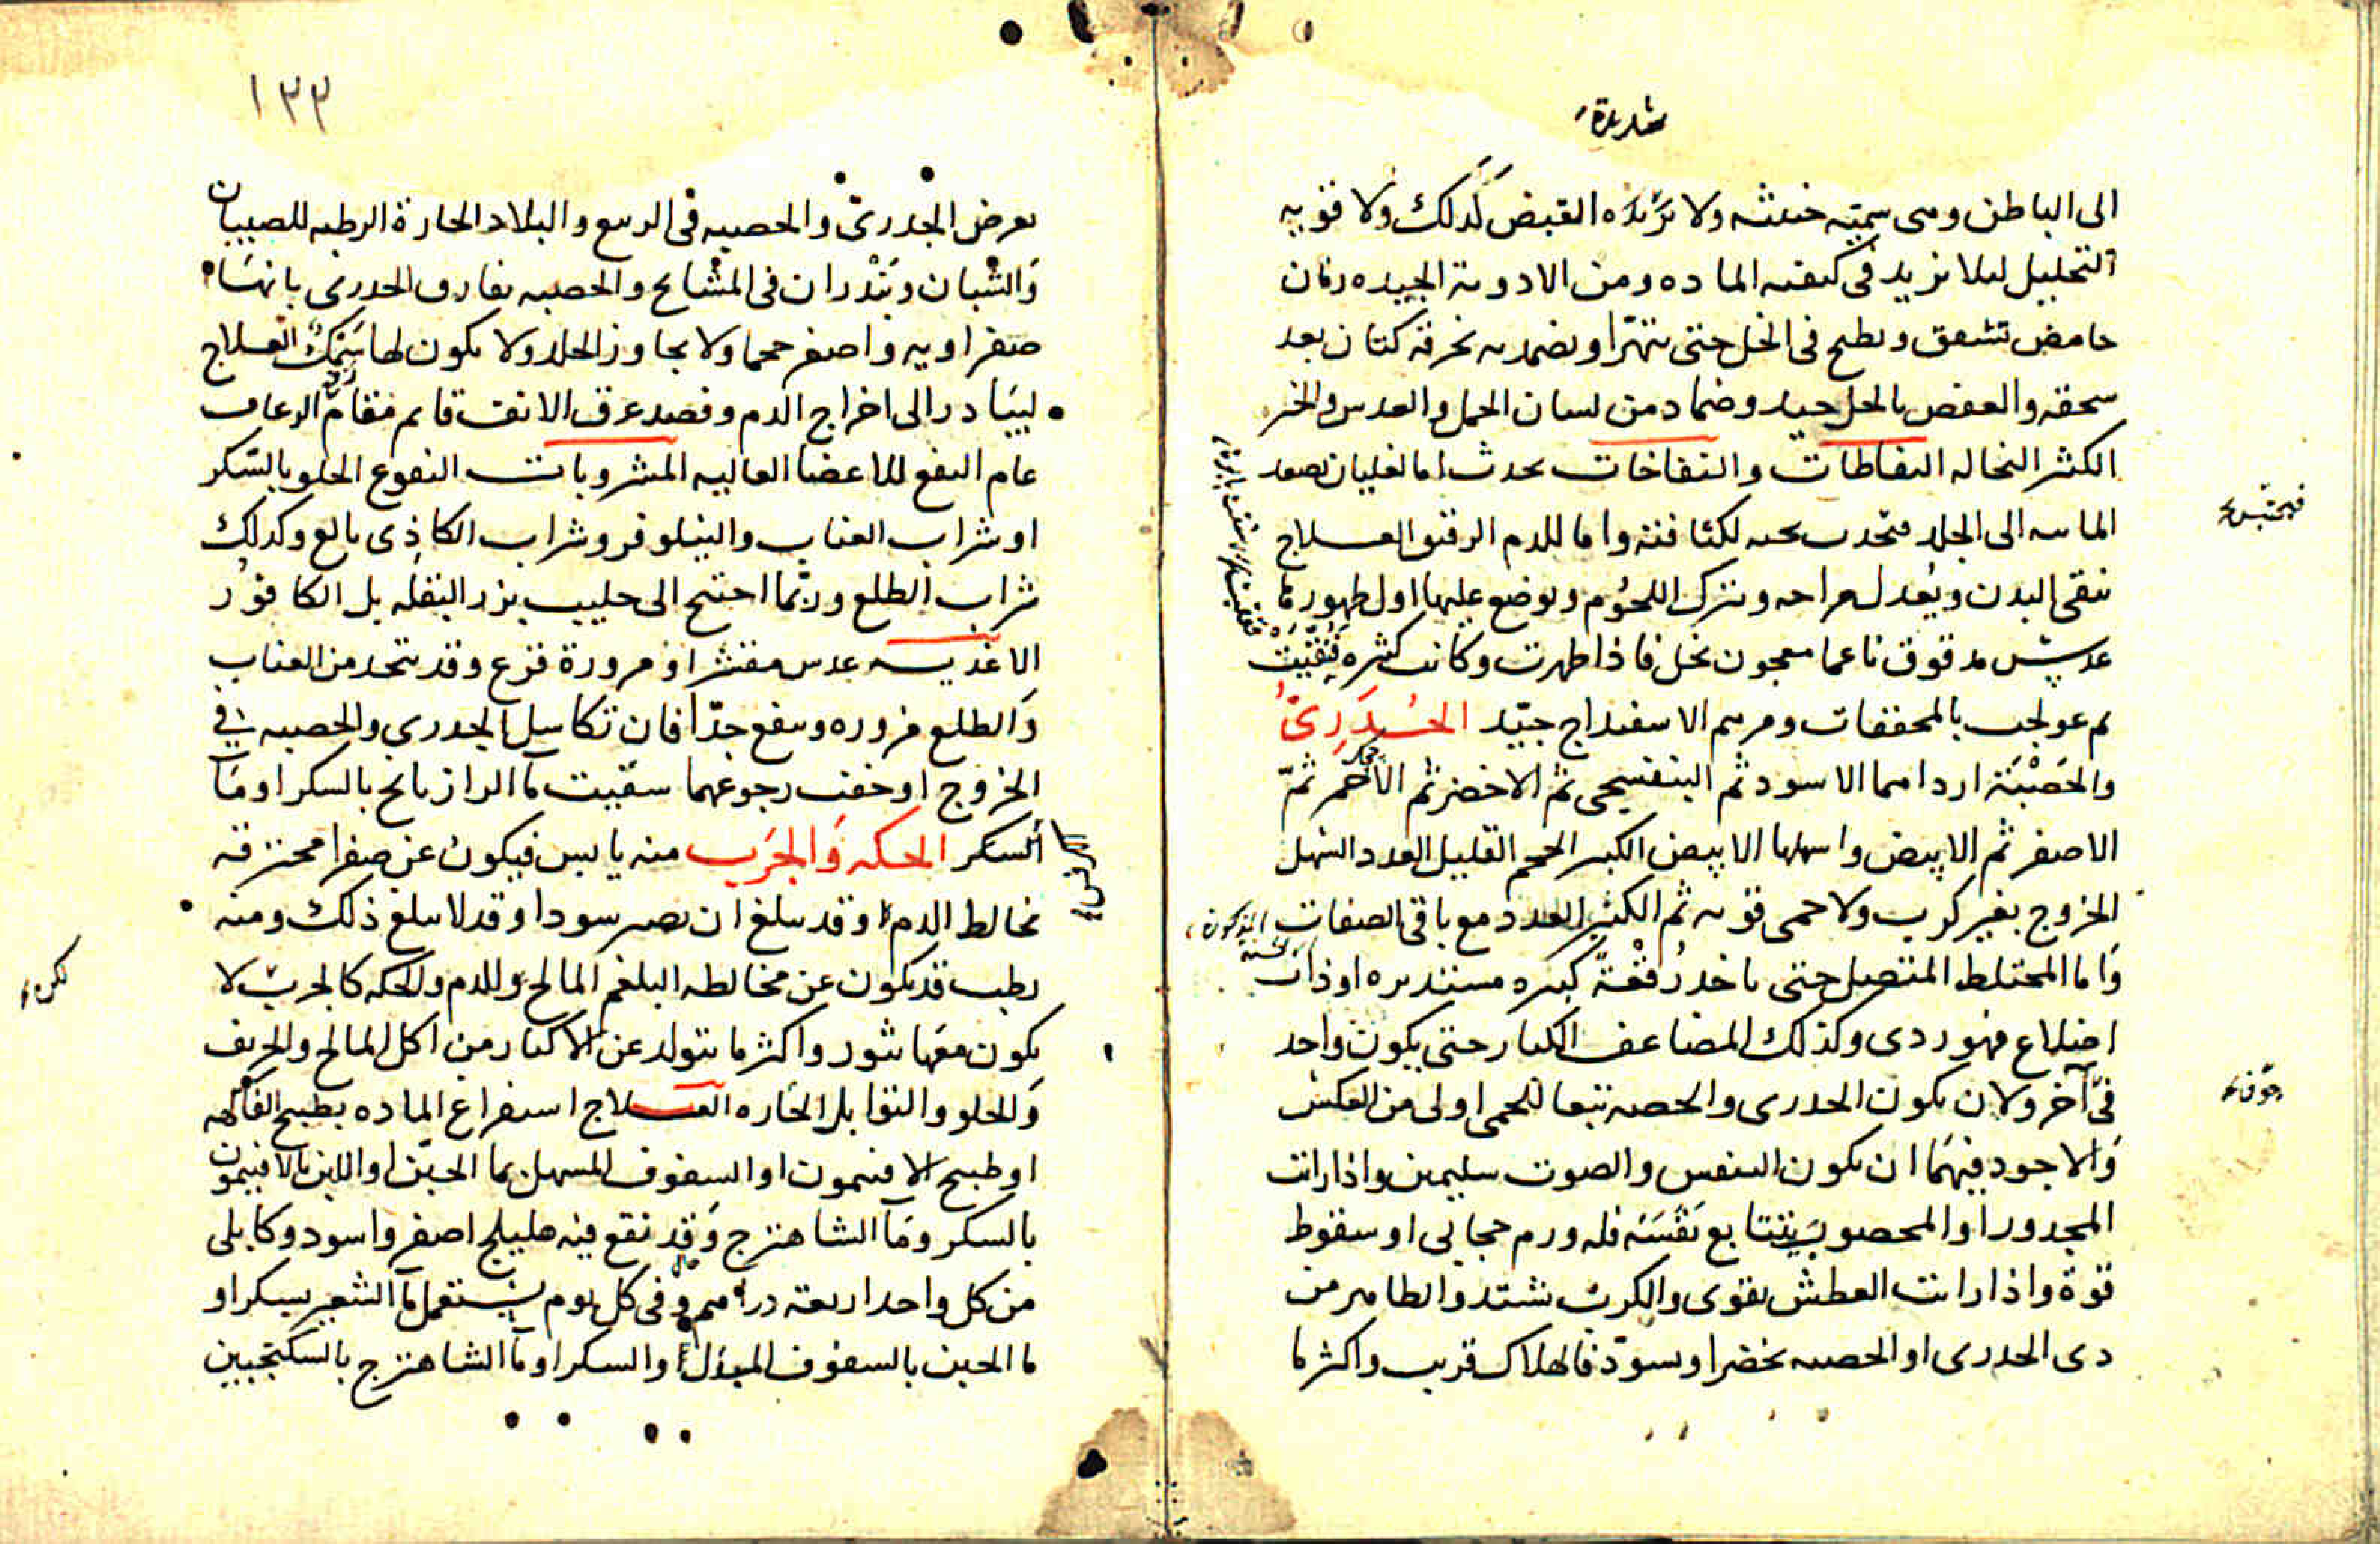 شديدة
الى الباطن ومى سمية خبيثه ولا شديده القبض كذلك ولا قويه
التحليل ليلا يزيد فى كيفيه الماده ومن الادوية الجيده رمان
حامض تشقق ويطبخ فى الخل حتى يتهرا ويضمد به بخرقة كتان بعد
سحقه والعفص بالخل جيد وضماد من لسان الحمل والعدس والخبز
الكثير النخاله النفاطات والنفاخات يحدث اما لغليان يصعد
المائيه الى الجلد تحته لكثافته واما للدم الرقيق العلاج
ينقى البدن ويعدل مزاجه ويترك اللحوم ويوضع عليها اول ظهورها
عدس مدقوق ناعما معجون بخل فاذا ظهرت وكانت كثيره فقيت
ثم عولجت بالمجففات ومرهم الاسفيداج جيّد الجُدَرىُّ
والحَصْبَة ارداهما الاسود ثم البنفسجى ثم الاخضر ثم الاحمر ثمّ
الاصفر ثم الابيض واسهلها الابيض الكبير الحجم القليل العدد السهل
الخروج بغير كرب ولا حمى قويه ثم الكثير العدد مع باقى الصفات المذكورة
وَاما المختلط المتصل حتى ياخذ رقعةً كبيره مستديره او ذات
اضلاع فهو ردى وكذلك المضاعف الكبار حتى يكون واحد
فى آخر ولان يكون الجدرى والحصبه تتبعا للحمى اولى من العكس
وَالاجود فيهما ان يكون النفس والصوت سليمين واذا رايت
المجدور او المحصوب يتتابع نَفَسَه فله ورم حجابى او سقوط
قوة واذا رايت العطش يقوى والكرب يشتد والظاهر من
دى الجدرى او الحصبه يخضر او يسوّد فالهلاك قريب واكثر ما
فيحتبس
جوف
١٣٣
يعرض الجدرىّ والحصبيه فى الربيع والبلاد الحارة الرطبه للصبيان
وَالشبان ويَنْدران فى المشايخ والحصبه تفارق الجدرى بانها
صفراويه واصغر حجما ولا يجاوز الجلد ولا يكون لها سَمكٌ العلاج
ليبادر الى اخراج الدم وفصد عرق الانف قايم مقام الرعاف
عام النفع للاعضا العاليه المشروبات النقوع الحلو بالسّكر
او شراب العناب والنيلوفر وشراب الكاذِى بالغ وكذلك
شراب الطلع وربّما احتيج الى حليب بزر البقله بل الكافور
الاغذيه عدس مقشر او مزورة قرع وقد تتخذ من العناب
وَالطلع مزوره وينفع جدّا فان تكاسل الجدري والحصبه فى
الخروج او خفت رجوعهما سقيت ماَ الرازيانج بالسكر او مَا
السكر الحكه وَالجرَب منه يابس فيكون عن صفرا محترقه
تخالط الدم او قد يبلغ ان يصير سودا وقد لا يبلغ ذلك ومنه
رطب قد يكون عن مخالطه البلغم المالح للدم والحكه كالجرب لا
يكون معَها بثور واكثر ما يتولد عن الاكثار من اكل المالح والحريف
وَالحلو والتوابل الحاره العلاج استفراغ الماده بطبيخ الفاكهه
او طبيخ الافتيمون او السفوف المسهل بما الجبن او اللبن بالافتيمون
بالسكر ومَا الشاهترج وَقد نقع فيه هليلج اصفر واسود وكابلى
من كل واحد اربعة دراهم وفى كل يوم يستعمل ماَ الشعير بسكر او
ما الجبن بالسفوف المبدل او السكر او ماَ الشاهترج بالسكنجبين